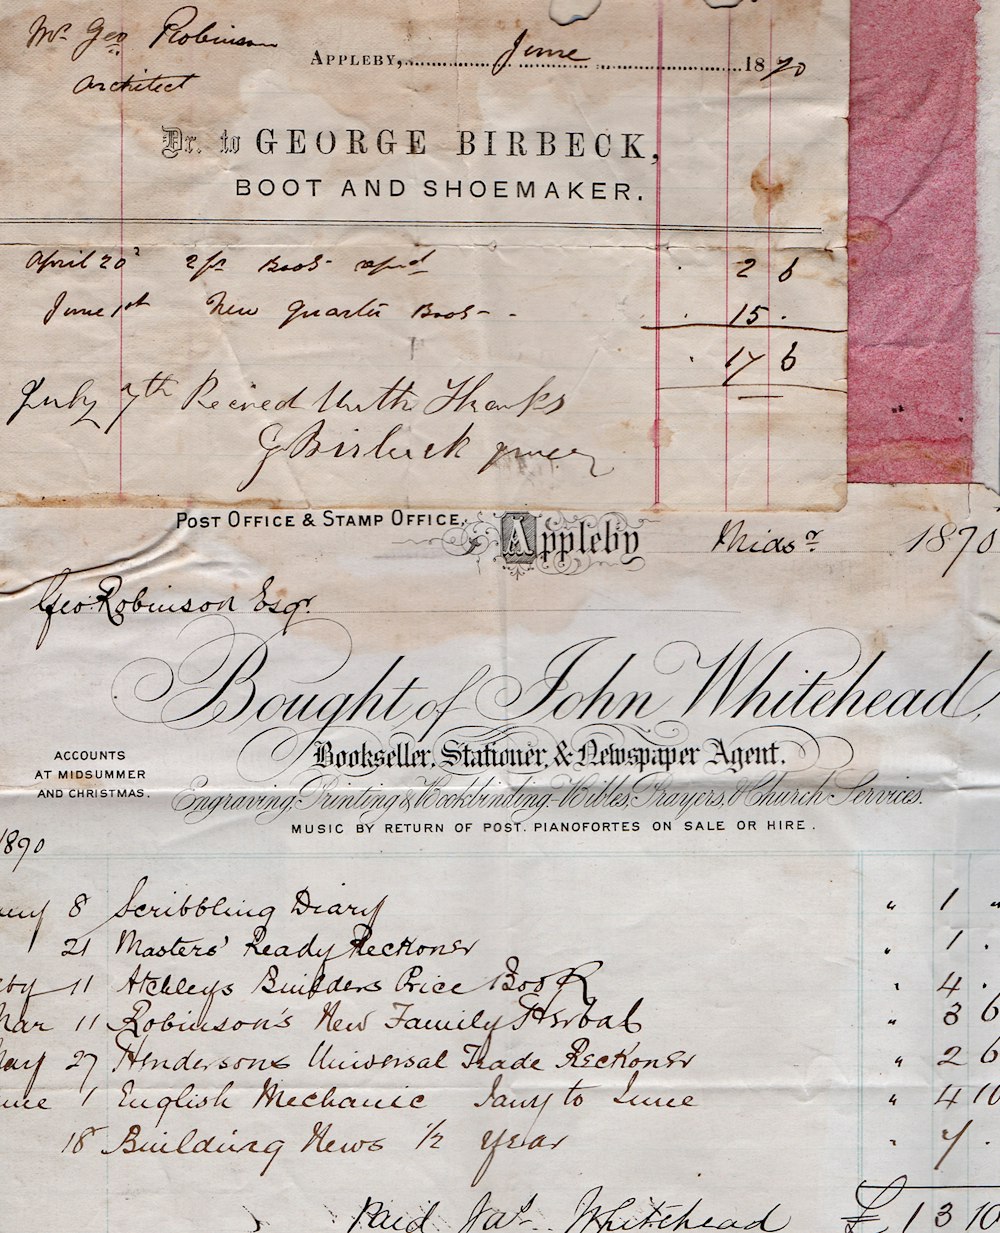 Mr Geo Robinson
Architect
Appleby, June 1870
Dr. to GEORGE BIRBECK,
BOOT AND SHOEMAKER.
April 20 2 pr Boots 2 6
June 1st New quarter Boots - - 15 .
17 6
July 7th Received With Thanks
G Birbeck
POST OFFICE & STAMP OFFICE, Appleby Midsr 1870
Geo Robinson Esqr.
Bought of John Whitehead,
Bookseller, Stationer, & Newspaper Agent.
ACCOUNTS
AT MIDSUMMER
AND CHRISTMAS.
Engraving, Printing & Bookbinding - Bibles, Prayers, & Church Services.
MUSIC BY RETURN OF POST. PIANOFORTES ON SALE OR HIRE.
1890
8 Scribbling Diary " 1 "
21 Masters' Ready Reckoner " 1 .
11 Atchleys Builders Price Book . 4 .
Mar 11 Robinson's New Family Herbal " 3 6
May 27 Hendersons Universal Trade Reckoner " 2 6
June 1 English Mechanic Jany to June " 4 10
18 Building News 1/2 year . 7 .
Paid Jas. Whitehead £1 3 10